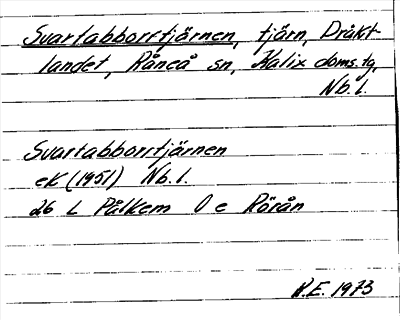 Svartabborrtjärnen, tjärn, Dråkt-
landet, Råneå sn, Kalix doms.tg,
Nb.l.
Svartabborrtjärnen
ek (1951) Nb.l.
26 L Pålkem 0 e Rörån
R.E. 1973